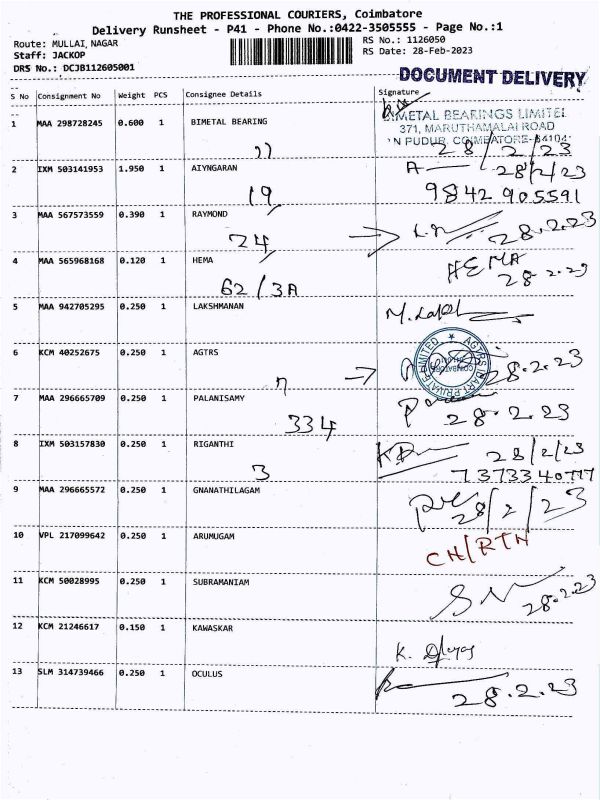 THE PROFESSIONAL COURIERS, Coimbatore
Delivery Runsheet - P41 - Phone No.:0422-3505555 - Page No.:1
Route: MULLAI, NAGAR
RS No.: 1126050
Staff: JACKOP
RS Date: 28-Feb-2023
DRS No.: DCJB112605001
DOCUMENT DELIVERY
S No Consignment No Weight PCS Consignee Details Signature
1 MAA 298728245 0.600 1 BIMETAL BEARING
BIMETAL BEARINGS LIMITED
371, MARUTHAMALAI ROAD
'N PUDUR, COIMBATORE-64104
28/2/23
2 IXM 503141953 1.950 1 AIYNGARAN A 28/2/23
19 9842 905591
3 MAA 567573559 0.390 1 RAYMOND 28.2.23
24
4 MAA 565968168 0.120 1 HEMA HEMA
62/3A 28.2.23
5 MAA 942705295 0.250 1 LAKSHMANAN
6 KCM 40252675 0.250 1 AGTRS AGTRS PRIVATE LIMITED 28.2.23
7
7 MAA 296665709 0.250 1 PALANISAMY
334 28.2.23
8 IXM 503157830 0.250 1 RIGANTHI 28/2/23
3
9 MAA 296665572 0.250 1 GNANATHILAGAM 28/2/23
10 VPL 217099642 0.250 1 ARUMUGAM CH/RTN
11 KCM 50028995 0.250 1 SUBRAMANIAM 28.2.23
12 KCM 21246617 0.150 1 KAWASKAR
K.
13 SLM 314739466 0.250 1 OCULUS 28.2.23